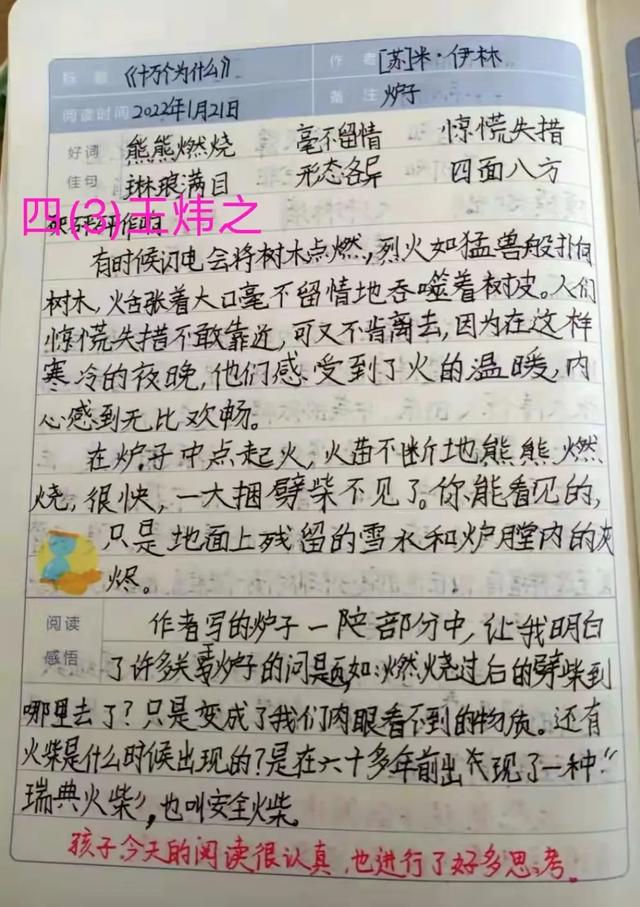 标 题 《十万个为什么》 作 者 [苏]米·伊林
阅读时间 2022年1月21日 备 注 炉子
好词 熊熊燃烧 毫不留情 惊慌失措
佳句 琳琅满目 形态各异 四面八方
四(3)王炜之
有时候闪电会将树木点燃,烈火如猛兽般扑向
树木,火舌张着大口毫不留情地吞噬着树皮。人们
惊慌失措不敢靠近,可又不肯离去,因为在这样
寒冷的夜晚,他们感受到了火的温暖,内
心感到无比欢畅。
在炉子中点起火,火苗不断地熊熊燃
烧,很快,一大捆劈柴不见了。你能看见的,
只是地面上残留的雪水和炉膛内的灰
烬。
阅读 作者写的炉子一陪部分中,让我明白
感悟 了许多关于炉子的问题,如:燃烧过后的劈柴到
哪里去了?只是变成了我们肉眼看不到的物质。还有
火柴是什么时候出现的?是在六十多年前出现了一种“
瑞典火柴”,也叫安全火柴。
孩子今天的阅读很认真,也进行了好多思考。